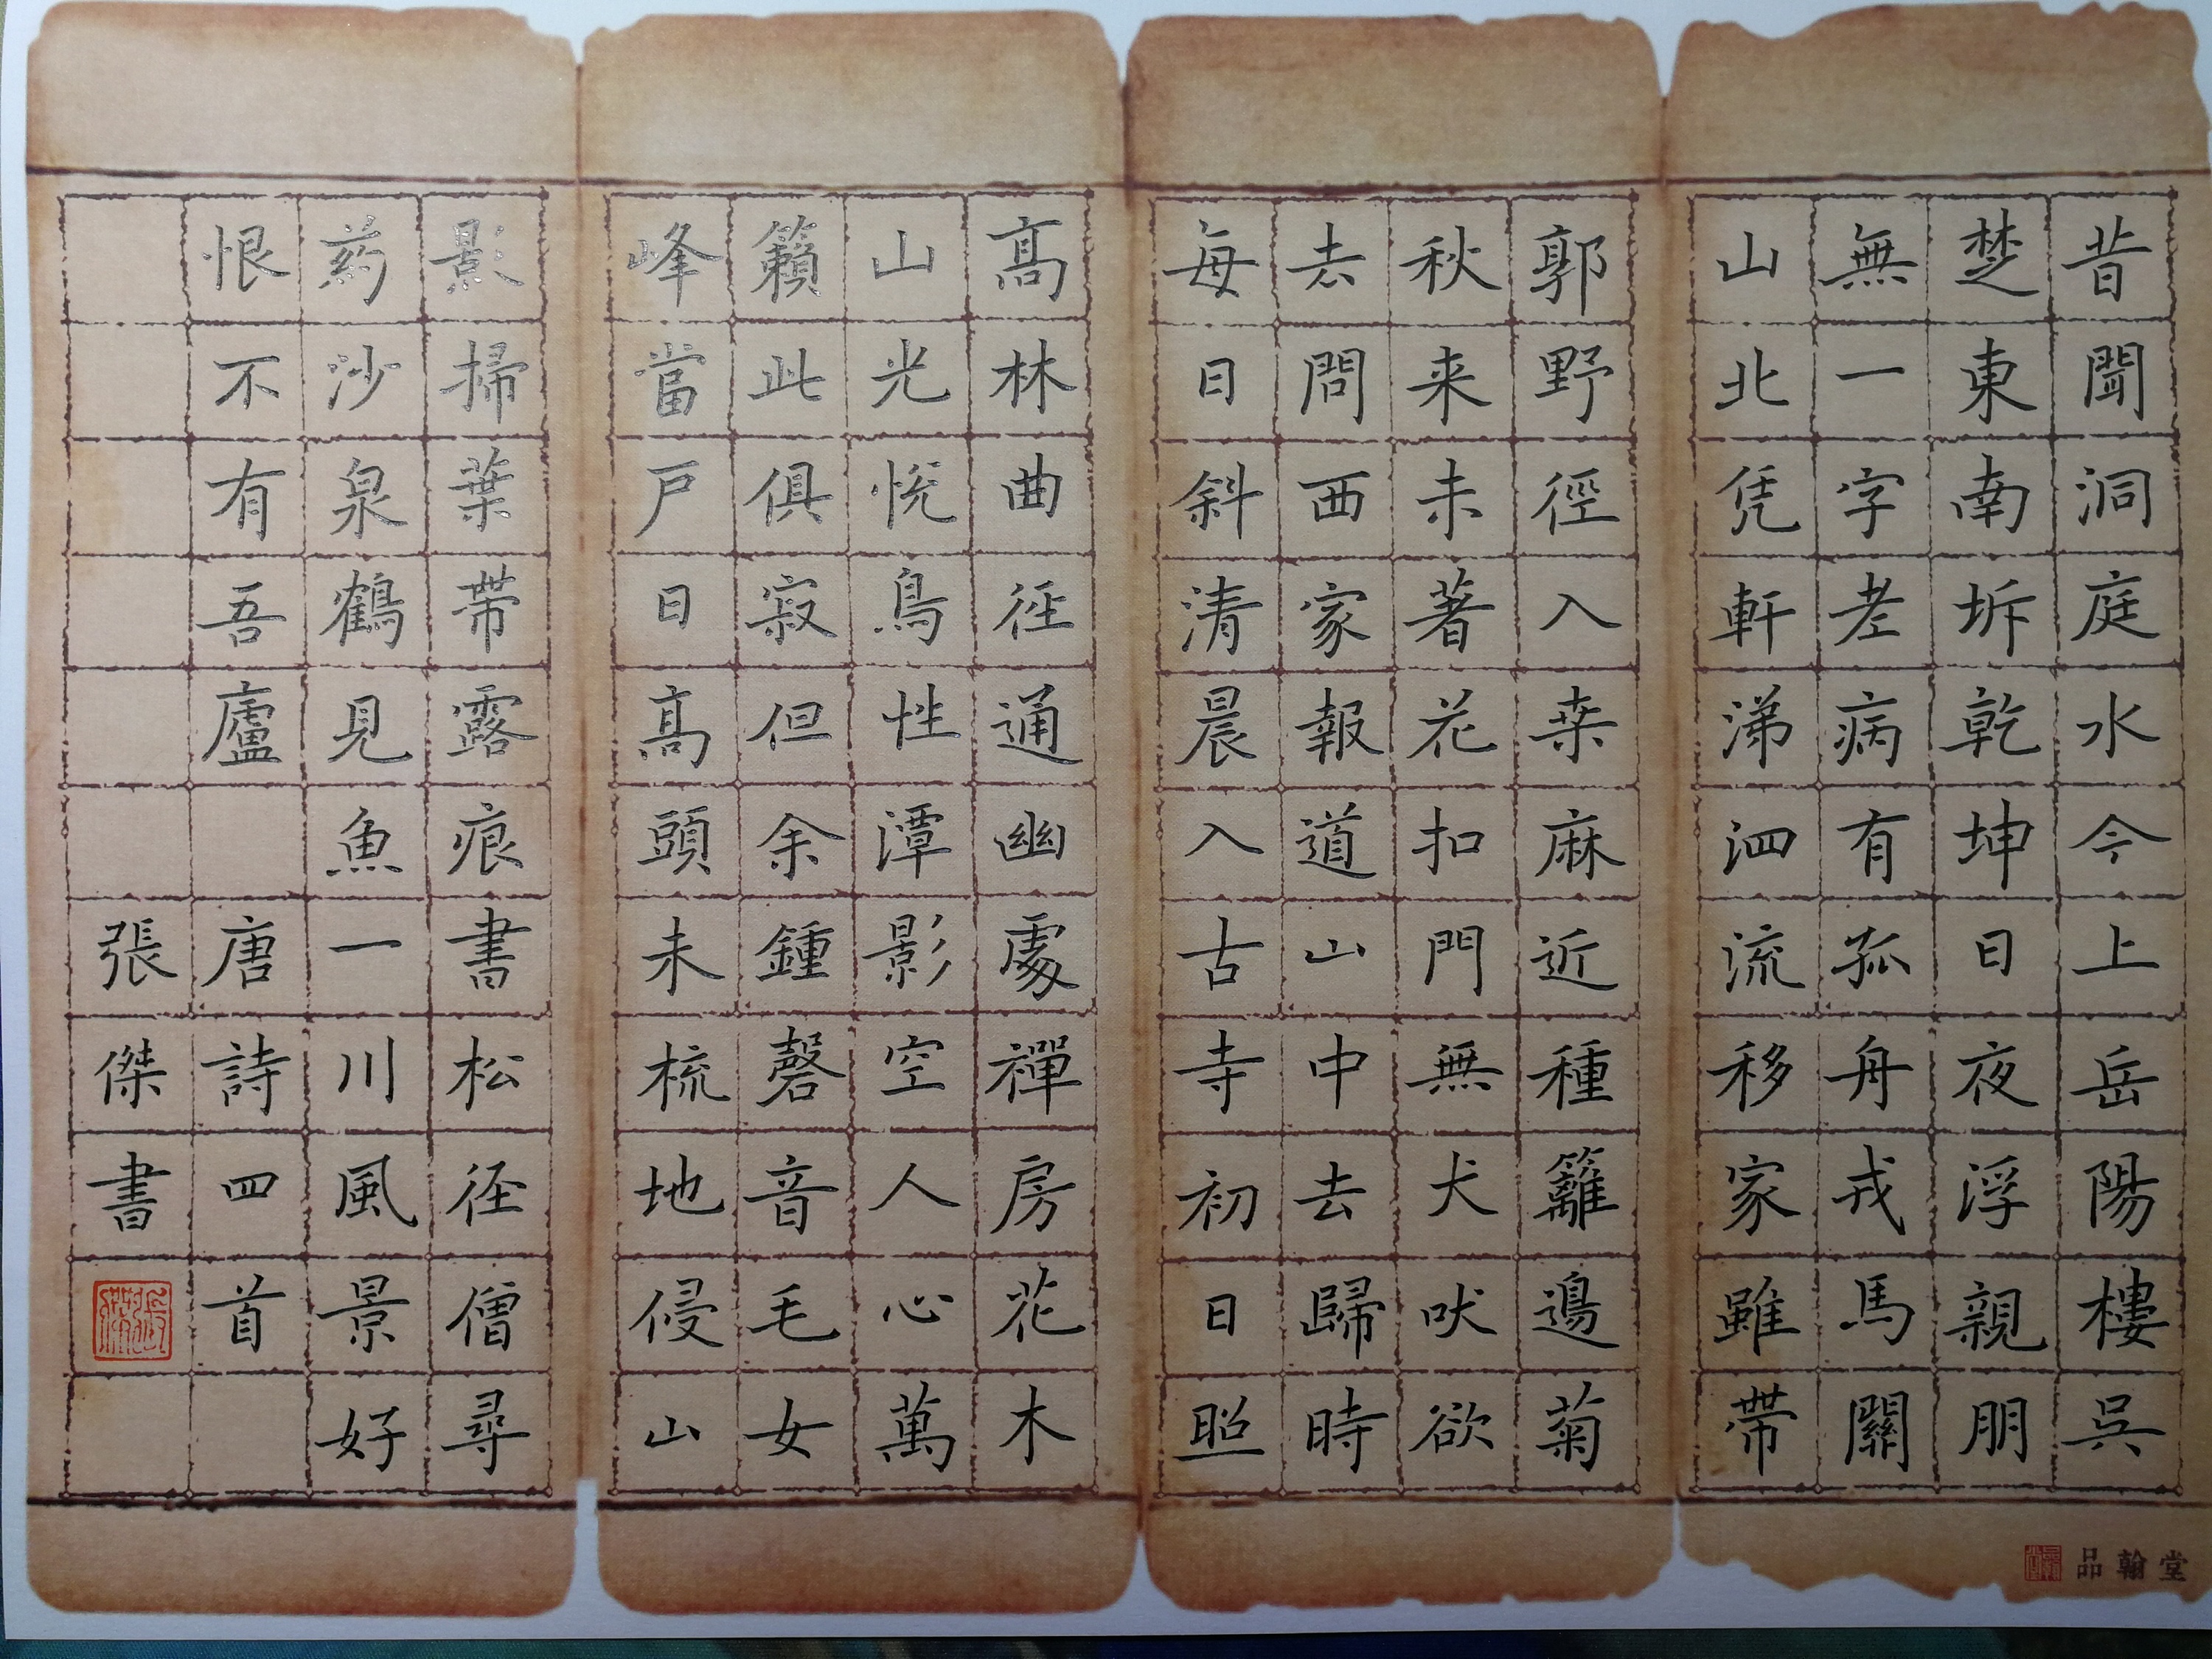 昔聞洞庭水今上岳陽樓吳
楚東南坼乾坤日夜浮親朋
無一字老病有孤舟戎馬關
山北凭軒涕泗流移家雖帶
郭野徑入桒麻近種籬邊菊
秋来未著花扣門無犬吠欲
去問西家報道山中去歸時
每日斜清晨入古寺初日照
髙林曲径通幽處禪房花木
山光悅鳥性潭影空人心萬
籟此俱寂但余鍾磬音毛女
峰當戶日髙頭未梳地侵山
影掃葉帶露痕書松径僧尋
药沙泉鶴見魚一川風景好
恨不有吾廬 唐詩四首
張傑書
品翰堂